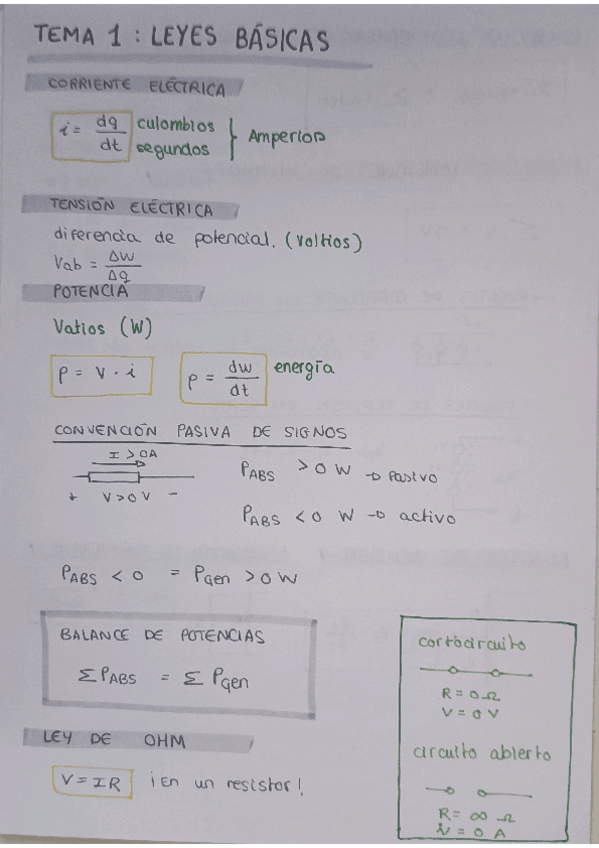 TEMA 1 : LEYES BÁSICAS
CORRIENTE ELÉCTRICA
i = dq/dt culombios segundos } Amperios
TENSIÓN ELÉCTRICA
diferencia de potencial. (Voltios)
Vab = ΔW/Δq
POTENCIA
Vatios (W)
P = V · i
P = dw/dt energía
CONVENCIÓN PASIVA DE SIGNOS
I > 0A
+ V > 0 V -
PABS > 0 W → Pasivo
PABS < 0 W → activo
PABS < 0 = PGen > 0 W
BALANCE DE POTENCIAS
Σ PABS = Σ PGen
LEY DE OHM
V = IR ¡En un resistor!
cortocircuito
R = 0 Ω
V = 0 V
circuito abierto
R = ∞ Ω
i = 0 A